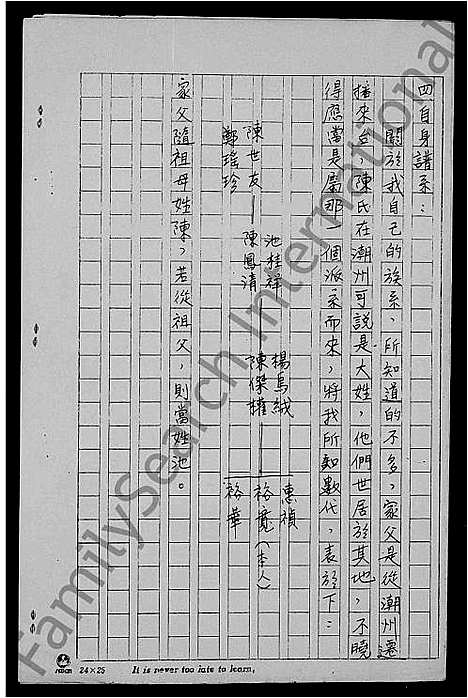 四自身譜系：
關於我自己的族系，所知道的不多，家父是從潮州遷
播來台，陳氏在潮州可說是大姓，他們世居於其地，不曉
得應當是屬那一個派系而來，將我所知數代，表於下：
池桂祥 楊烏絨 惠禎
陳世友 陳鳳清 陳傑權 裕寬（本人）
鄭瑤珍 裕華
家父隨祖母姓陳，若從祖父，則當姓池。
24×25 It is never too late to learn,
FamilySearch International